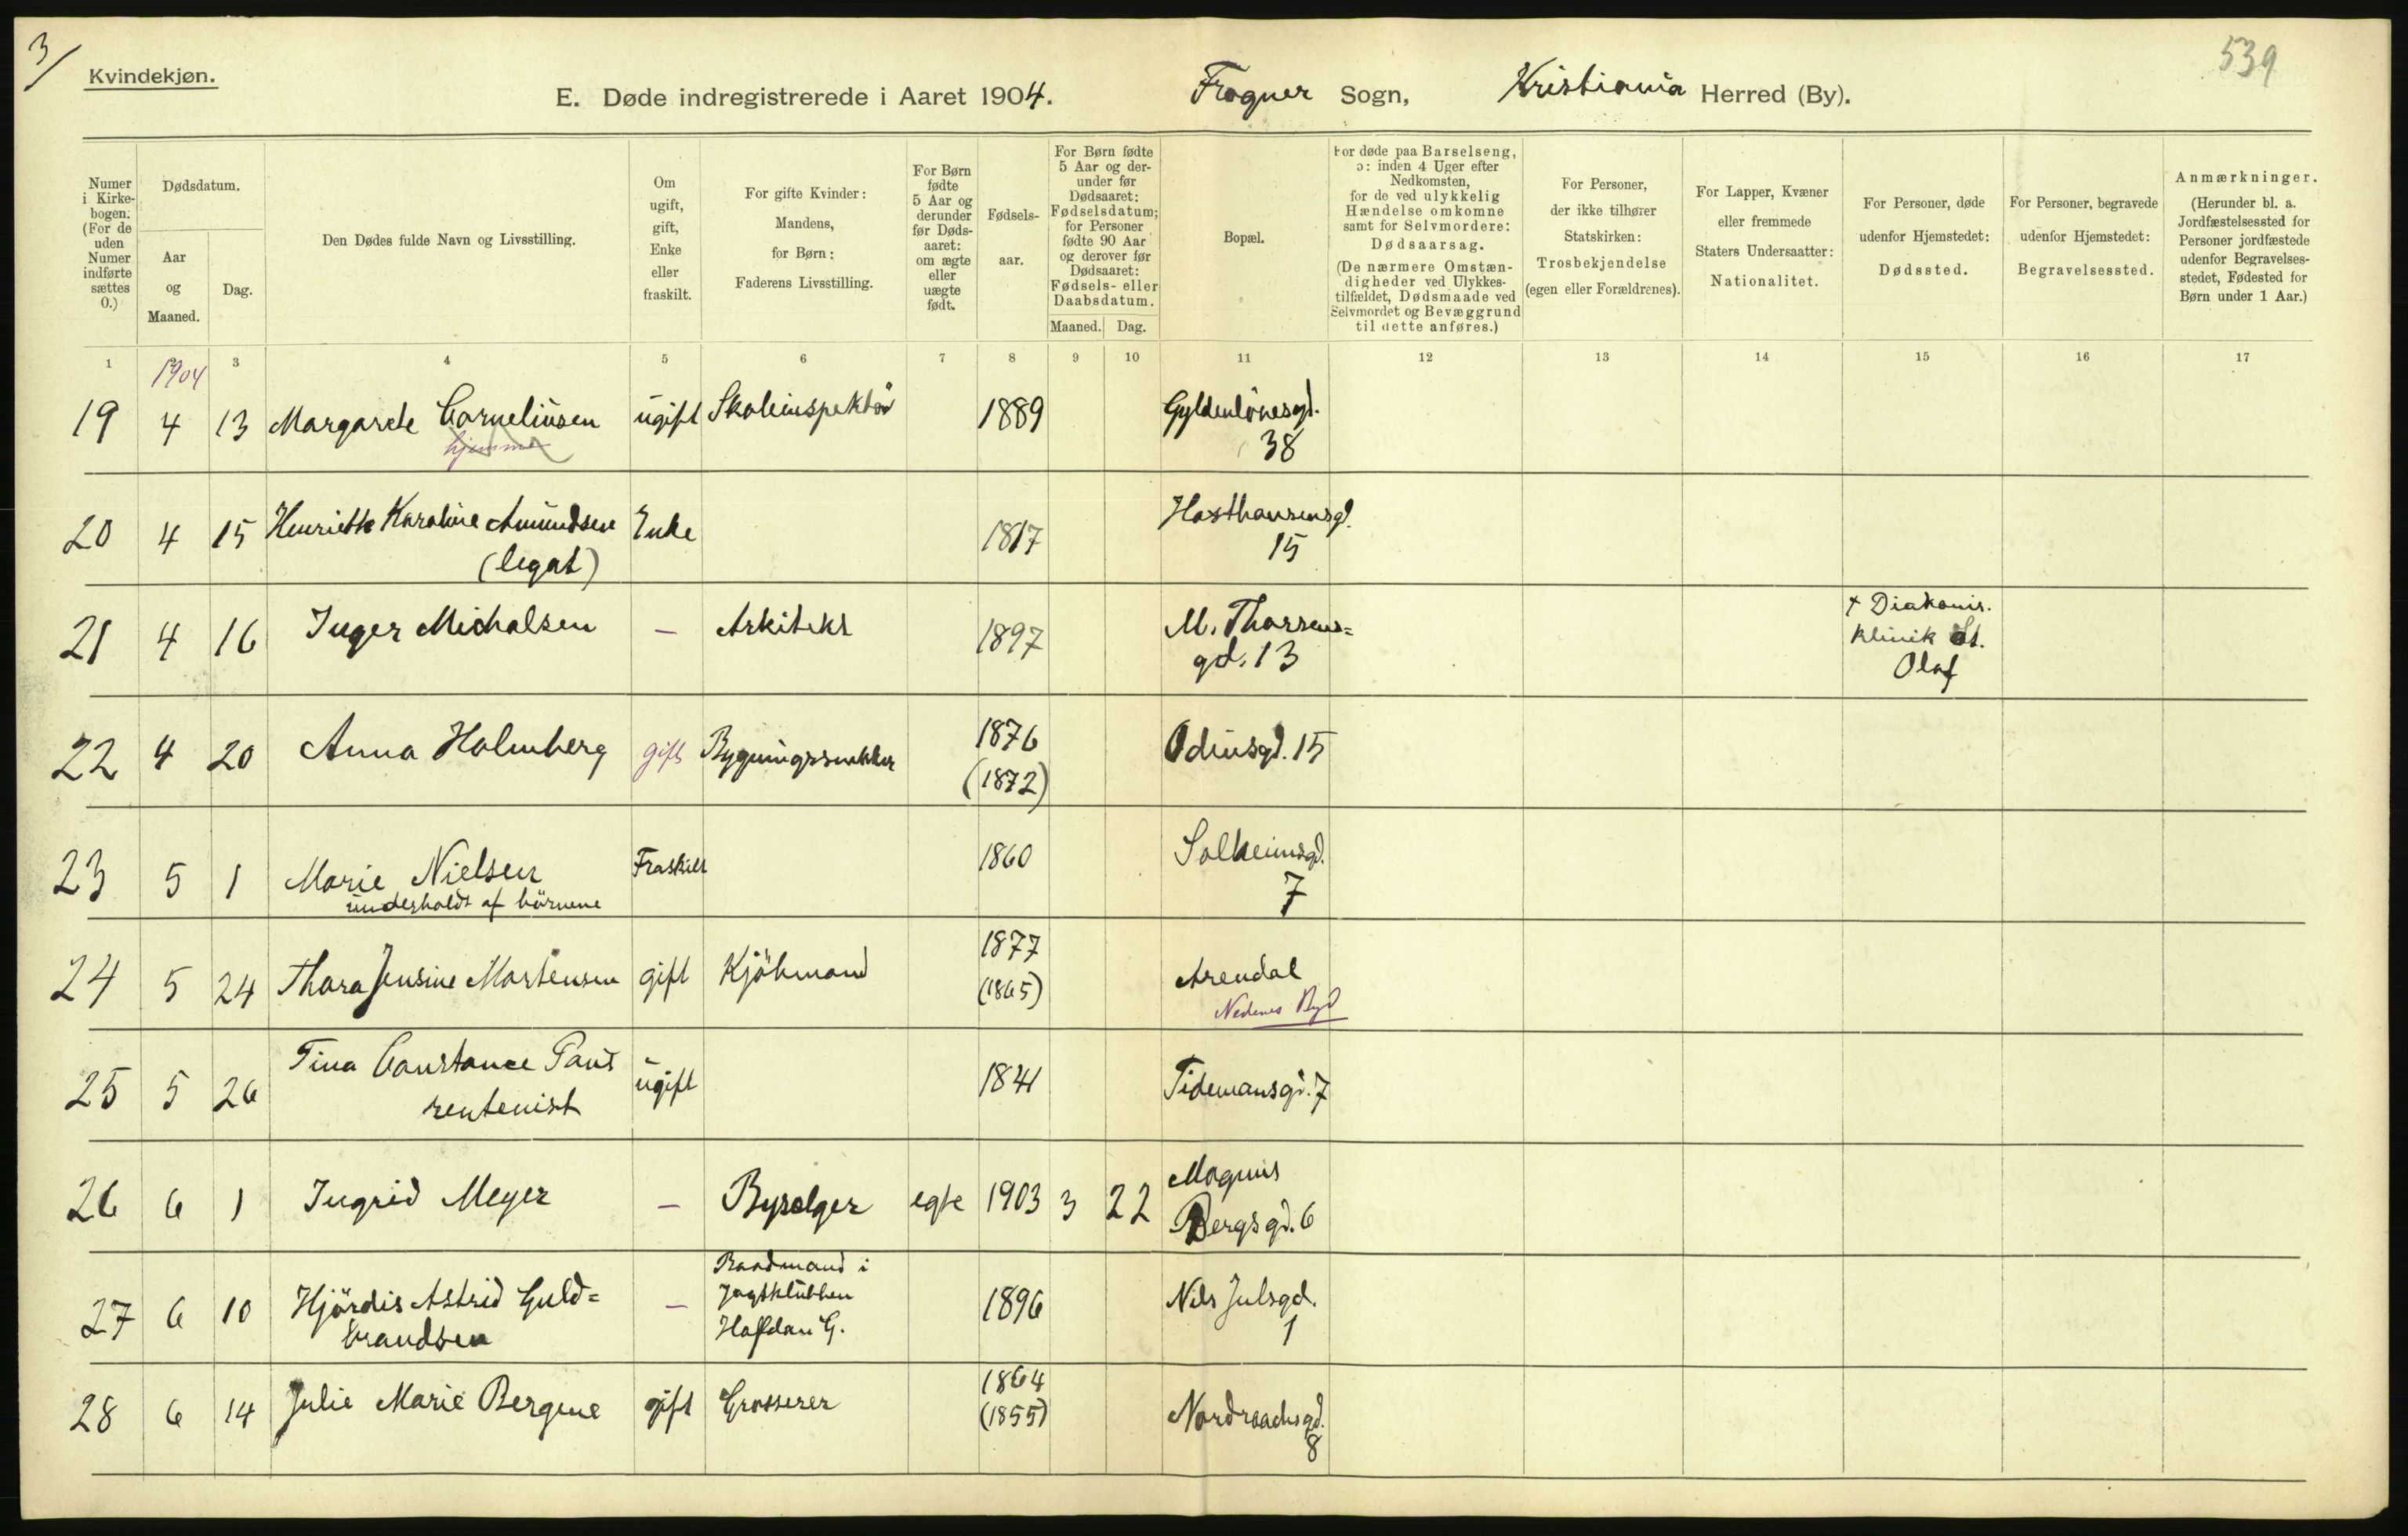 3/
Kvindekjøn.
539
E. Døde indregistrerede i Aaret 1904. Frogner Sogn, Kristiania Herred (By).
Numer
i Kirke-
bogen.
(For de
uden
Numer
indførte
sættes
0.)
Dødsdatum.
Aar
og
Maaned.
Dag.
Den Dødes fulde Navn og Livsstilling.
Om
ugift,
gift,
Enke
eller
fraskilt.
For gifte Kvinder:
Mandens,
for Børn:
Faderens Livsstilling.
For Børn
fødte
5 Aar og
derunder
før Døds-
aaret:
om ægte
eller
uægte
født.
Fødsels-
aar.
For Børn fødte
5 Aar og der-
under før
Dødsaaret:
Fødselsdatum;
for Personer
fødte 90 Aar
og derover før
Dødsaaret:
Fødsels- eller
Daabsdatum.
Maaned. Dag.
Bopæl.
For døde paa Barselseng,
ɔ: inden 4 Uger efter
Nedkomsten,
for de ved ulykkelig
Hændelse omkomne
samt for Selvmordere:
Dødsaarsag.
(De nærmere Omstæn-
digheder ved Ulykkes-
tilfældet, Dødsmaade ved
Selvmordet og Bevæggrund
til dette anføres.)
For Personer,
der ikke tilhører
Statskirken:
Trosbekjendelse
(egen eller Forældrenes).
For Lapper, Kvæner
eller fremmede
Staters Undersaatter:
Nationalitet.
For Personer, døde
udenfor Hjemstedet:
Dødssted.
For Personer, begravede
udenfor Hjemstedet:
Begravelsessted.
Anmærkninger.
(Herunder bl. a.
Jordfæstelsessted for
Personer jordfæstede
udenfor Begravelses-
stedet, Fødested for
Børn under 1 Aar.)
1 3 4 5 6 7 8 9 10 11 12 13 14 15 16 17
1904
19 4 13 Margarete Corneliusen ugift Skoleinspektör 1889 Gyldenlövesgd.
hjemme 38
20 4 15 Henriette Karoline Amundsen Enke 1817 Hosthausensgd.
(legat) 15
21 4 16 Inger Michalsen – Arkitekt 1897 M. Thorsens=
gd. 13
+ Diakonis.
klinik St.
Olaf
22 4 20 Anna Holmberg gift Bygningssnekker 1876 Odinsgd. 15
(1872)
23 5 1 Marie Nielsen Fraskilt 1860 Solheimsgd.
underholdt af börnene 7
24 5 24 Thora Jensine Mortensen gift Kjöbmand 1877 Arendal
(1865) Nedenes
25 5 26 Tina Constance Paus ugift 1841 Tidemansgd. 7
rentenist
26 6 1 Ingrid Meyer – Byselger egte 1903 3 22 Magnus
Bergsgd. 6
27 6 10 Hjördis Astrid Guld= – Baadmand i 1896 Nils Julsgd.
brandsen Jagtklubben 1
Halfdan G.
28 6 14 Julie Marie Bergene gift Grosserer 1864 Nordraachsgd.
(1855) 8